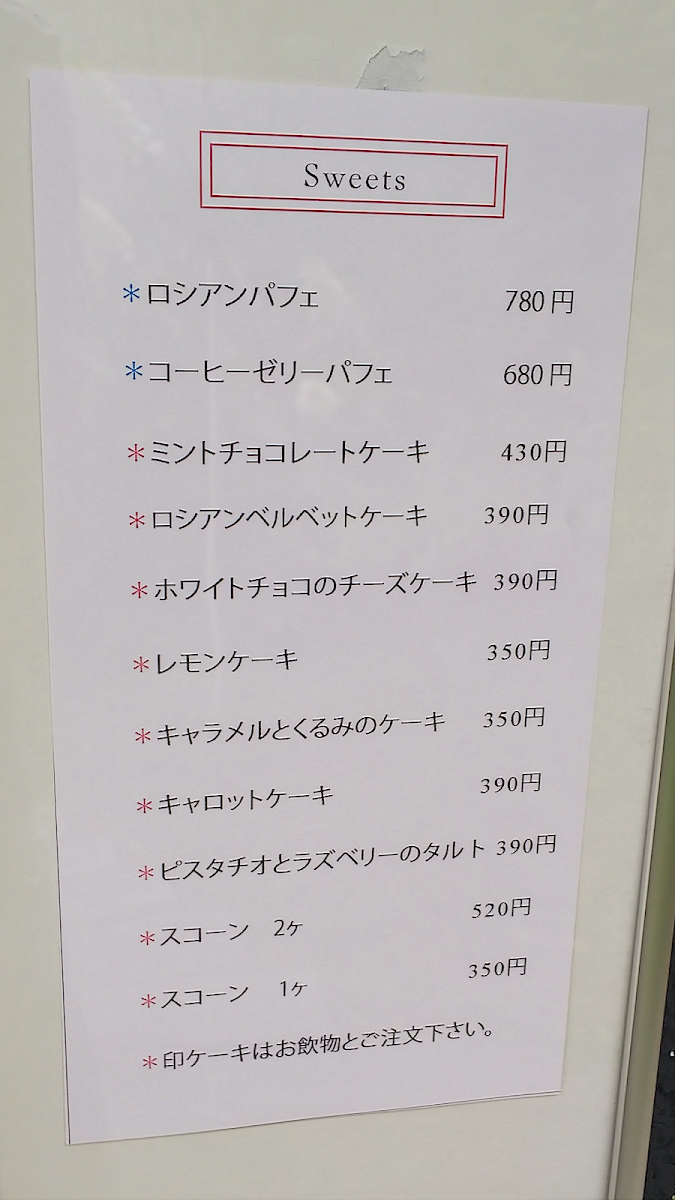 Sweets
＊ロシアンパフェ 780円
＊コーヒーゼリーパフェ 680円
＊ミントチョコレートケーキ 430円
＊ロシアンベルベットケーキ 390円
＊ホワイトチョコのチーズケーキ 390円
＊レモンケーキ 350円
＊キャラメルとくるみのケーキ 350円
＊キャロットケーキ 390円
＊ピスタチオとラズベリーのタルト 390円
＊スコーン 2ヶ 520円
＊スコーン 1ヶ 350円
＊印ケーキはお飲物とご注文下さい。